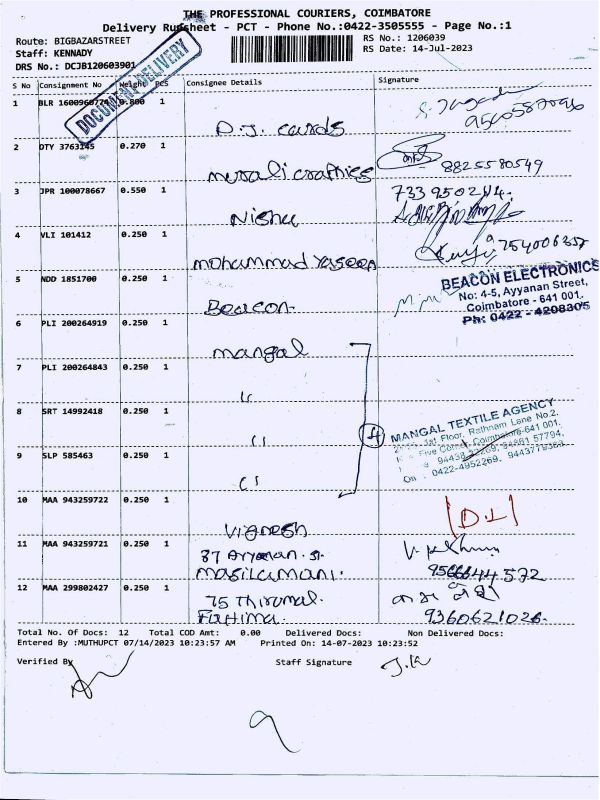 THE PROFESSIONAL COURIERS, COIMBATORE
Delivery Runsheet - PCT - Phone No.:0422-3505555 - Page No.:1
Route: BIGBAZARSTREET
RS No.: 1206039
Staff: KENNADY
RS Date: 14-Jul-2023
DRS No.: DCJB120603901
DOCUMENT DELIVERY
S No Consignment No Weight PCS Consignee Details Signature
1 BLR 0.800 1
D.J. cards
2 DTY 3763145 0.270 1
8825580549
murali graphics
3 JPR 100078667 0.550 1
Nisha
4 VLI 101412 0.250 1
mohammad Yaseen
5 NDD 1851700 0.250 1
BEACON ELECTRONICS
No: 4-5, Ayyanan Street,
Coimbatore - 641 001.
Ph: 0422 - 4208305
Beacon
6 PLI 200264919 0.250 1
mangal
7 PLI 200264843 0.250 1
8 SRT 14992418 0.250 1
MANGAL TEXTILE AGENCY
1st Floor, Rathnam Lane No.2,
Five Corner, Coimbatore-641 001.
0422-4952269,
4
9 SLP 585463 0.250 1
10 MAA 943259722 0.250 1
Vignesh
D.L
11 MAA 943259721 0.250 1
87
masilamani.
44572
12 MAA 299802427 0.250 1
75 Thirumal.
Fathima.
9360621026.
Total No. Of Docs: 12 Total COD Amt: 0.00 Delivered Docs: Non Delivered Docs:
Entered By :MUTHUPCT 07/14/2023 10:23:57 AM Printed On: 14-07-2023 10:23:52
Verified By Staff Signature
J.K
9